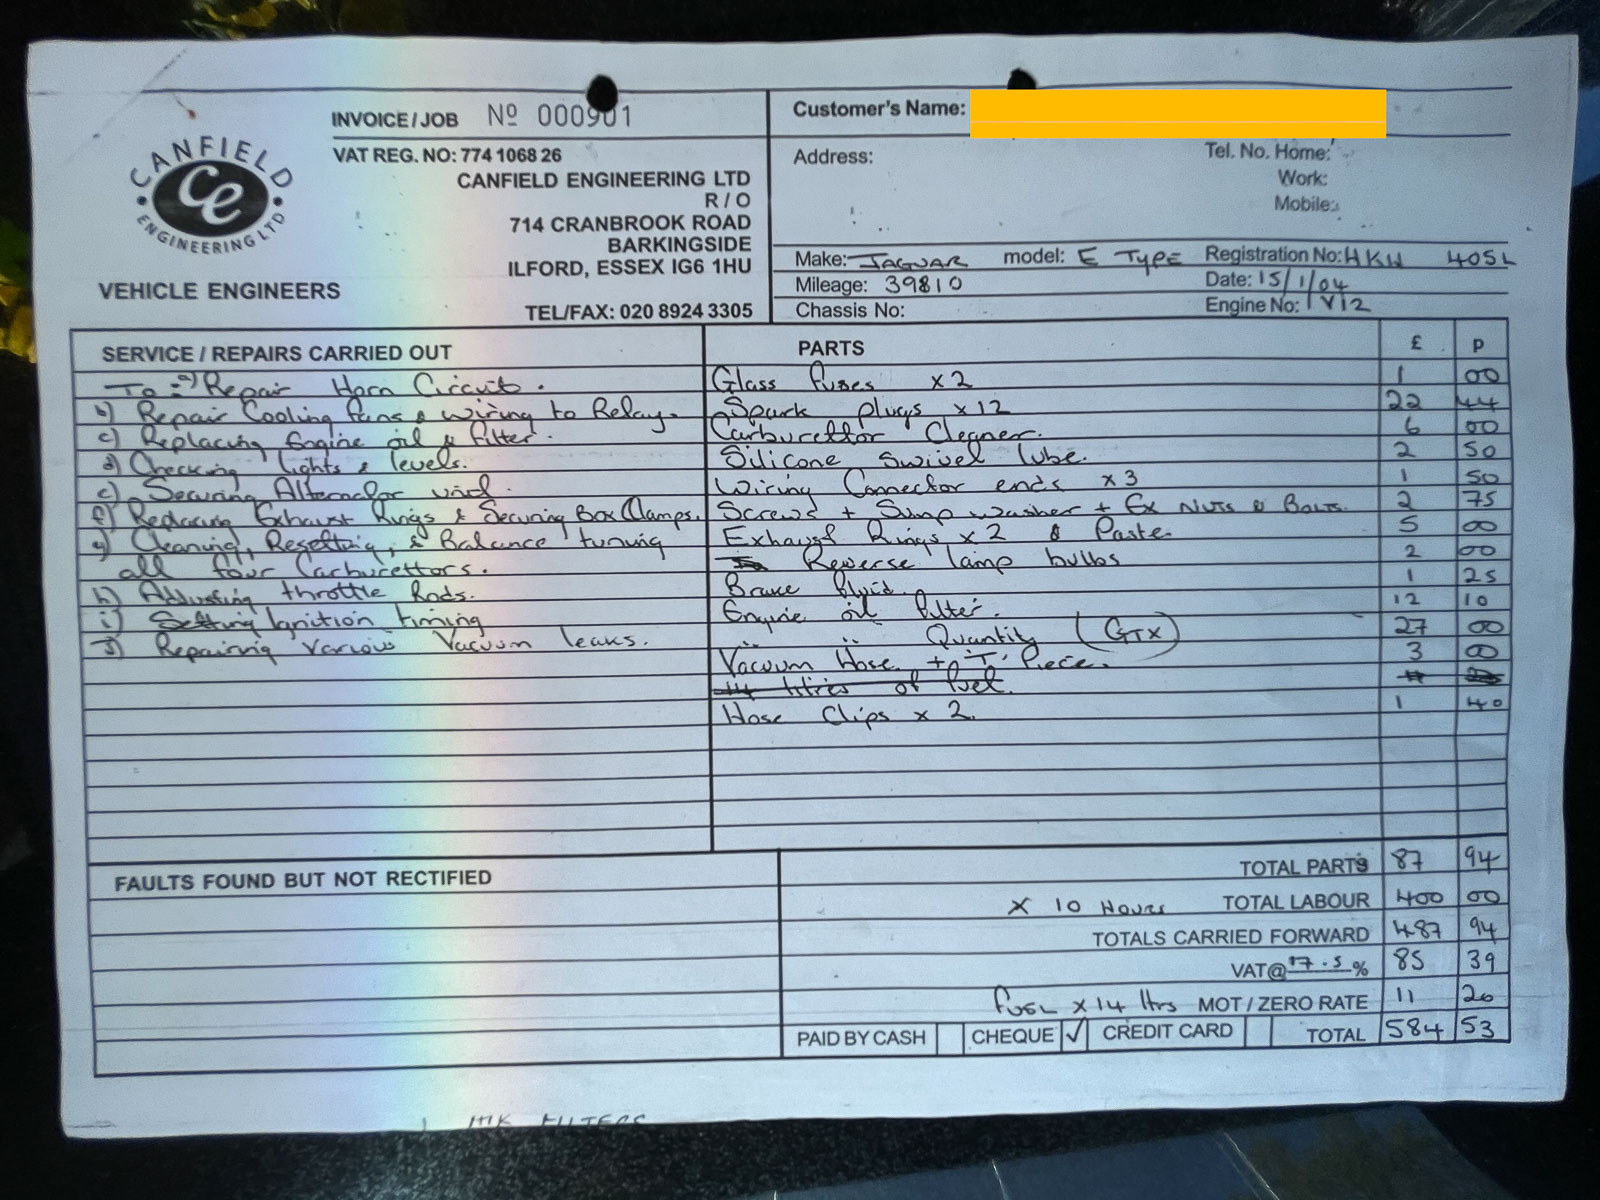 CANFIELD
ce
ENGINEERING LTD
VEHICLE ENGINEERS
INVOICE / JOB Nº 000901
VAT REG. NO: 774 1068 26
CANFIELD ENGINEERING LTD
R / O
714 CRANBROOK ROAD
BARKINGSIDE
ILFORD, ESSEX IG6 1HU
TEL/FAX: 020 8924 3305
Customer's Name:
Address:
Tel. No. Home:
Work:
Mobile:
Make: JAGUAR model: E TYPE Registration No: HKH 405L
Mileage: 39810 Date: 15/1/04
Chassis No: Engine No: V12
SERVICE / REPAIRS CARRIED OUT
To :- a) Repair Horn Circuit.
b) Repair Cooling fans & wiring to Relay.
c) Replacing Engine oil & filter.
d) Checking lights & levels.
e) Securing Alternator
f) Replacing Exhaust Rings & Securing Box Clamps.
g) Cleaning, Resetting, & Balance tuning
all four Carburettors.
h) Adjusting throttle Rods.
i) Setting Ignition timing
j) Repairing various Vacuum leaks.
PARTS £ P
Glass fuses x 2 1 00
Spark plugs x 12 22 44
Carburettor Cleaner. 6 00
Silicone Swivel lube. 2 50
Wiring Connector ends x 3 1 50
Screws + Sump washer + Ex NUTS & BOLTS. 2 75
Exhaust Rings x 2 & Paste. 5 00
Reverse lamp bulbs 2 00
Brake fluid. 1 25
Engine oil filter. 12 10
" " Quantity (GTX) 27 00
Vacuum Hose + 'T' Piece. 3 00
14 litres of fuel.
Hose Clips x 2. 1 40
FAULTS FOUND BUT NOT RECTIFIED
TOTAL PARTS 87 94
x 10 Hours TOTAL LABOUR 400 00
TOTALS CARRIED FORWARD 487 94
VAT@ 17.5 % 85 39
fuel x 14 ltrs MOT / ZERO RATE 11 20
PAID BY CASH CHEQUE ✓ CREDIT CARD TOTAL 584 53